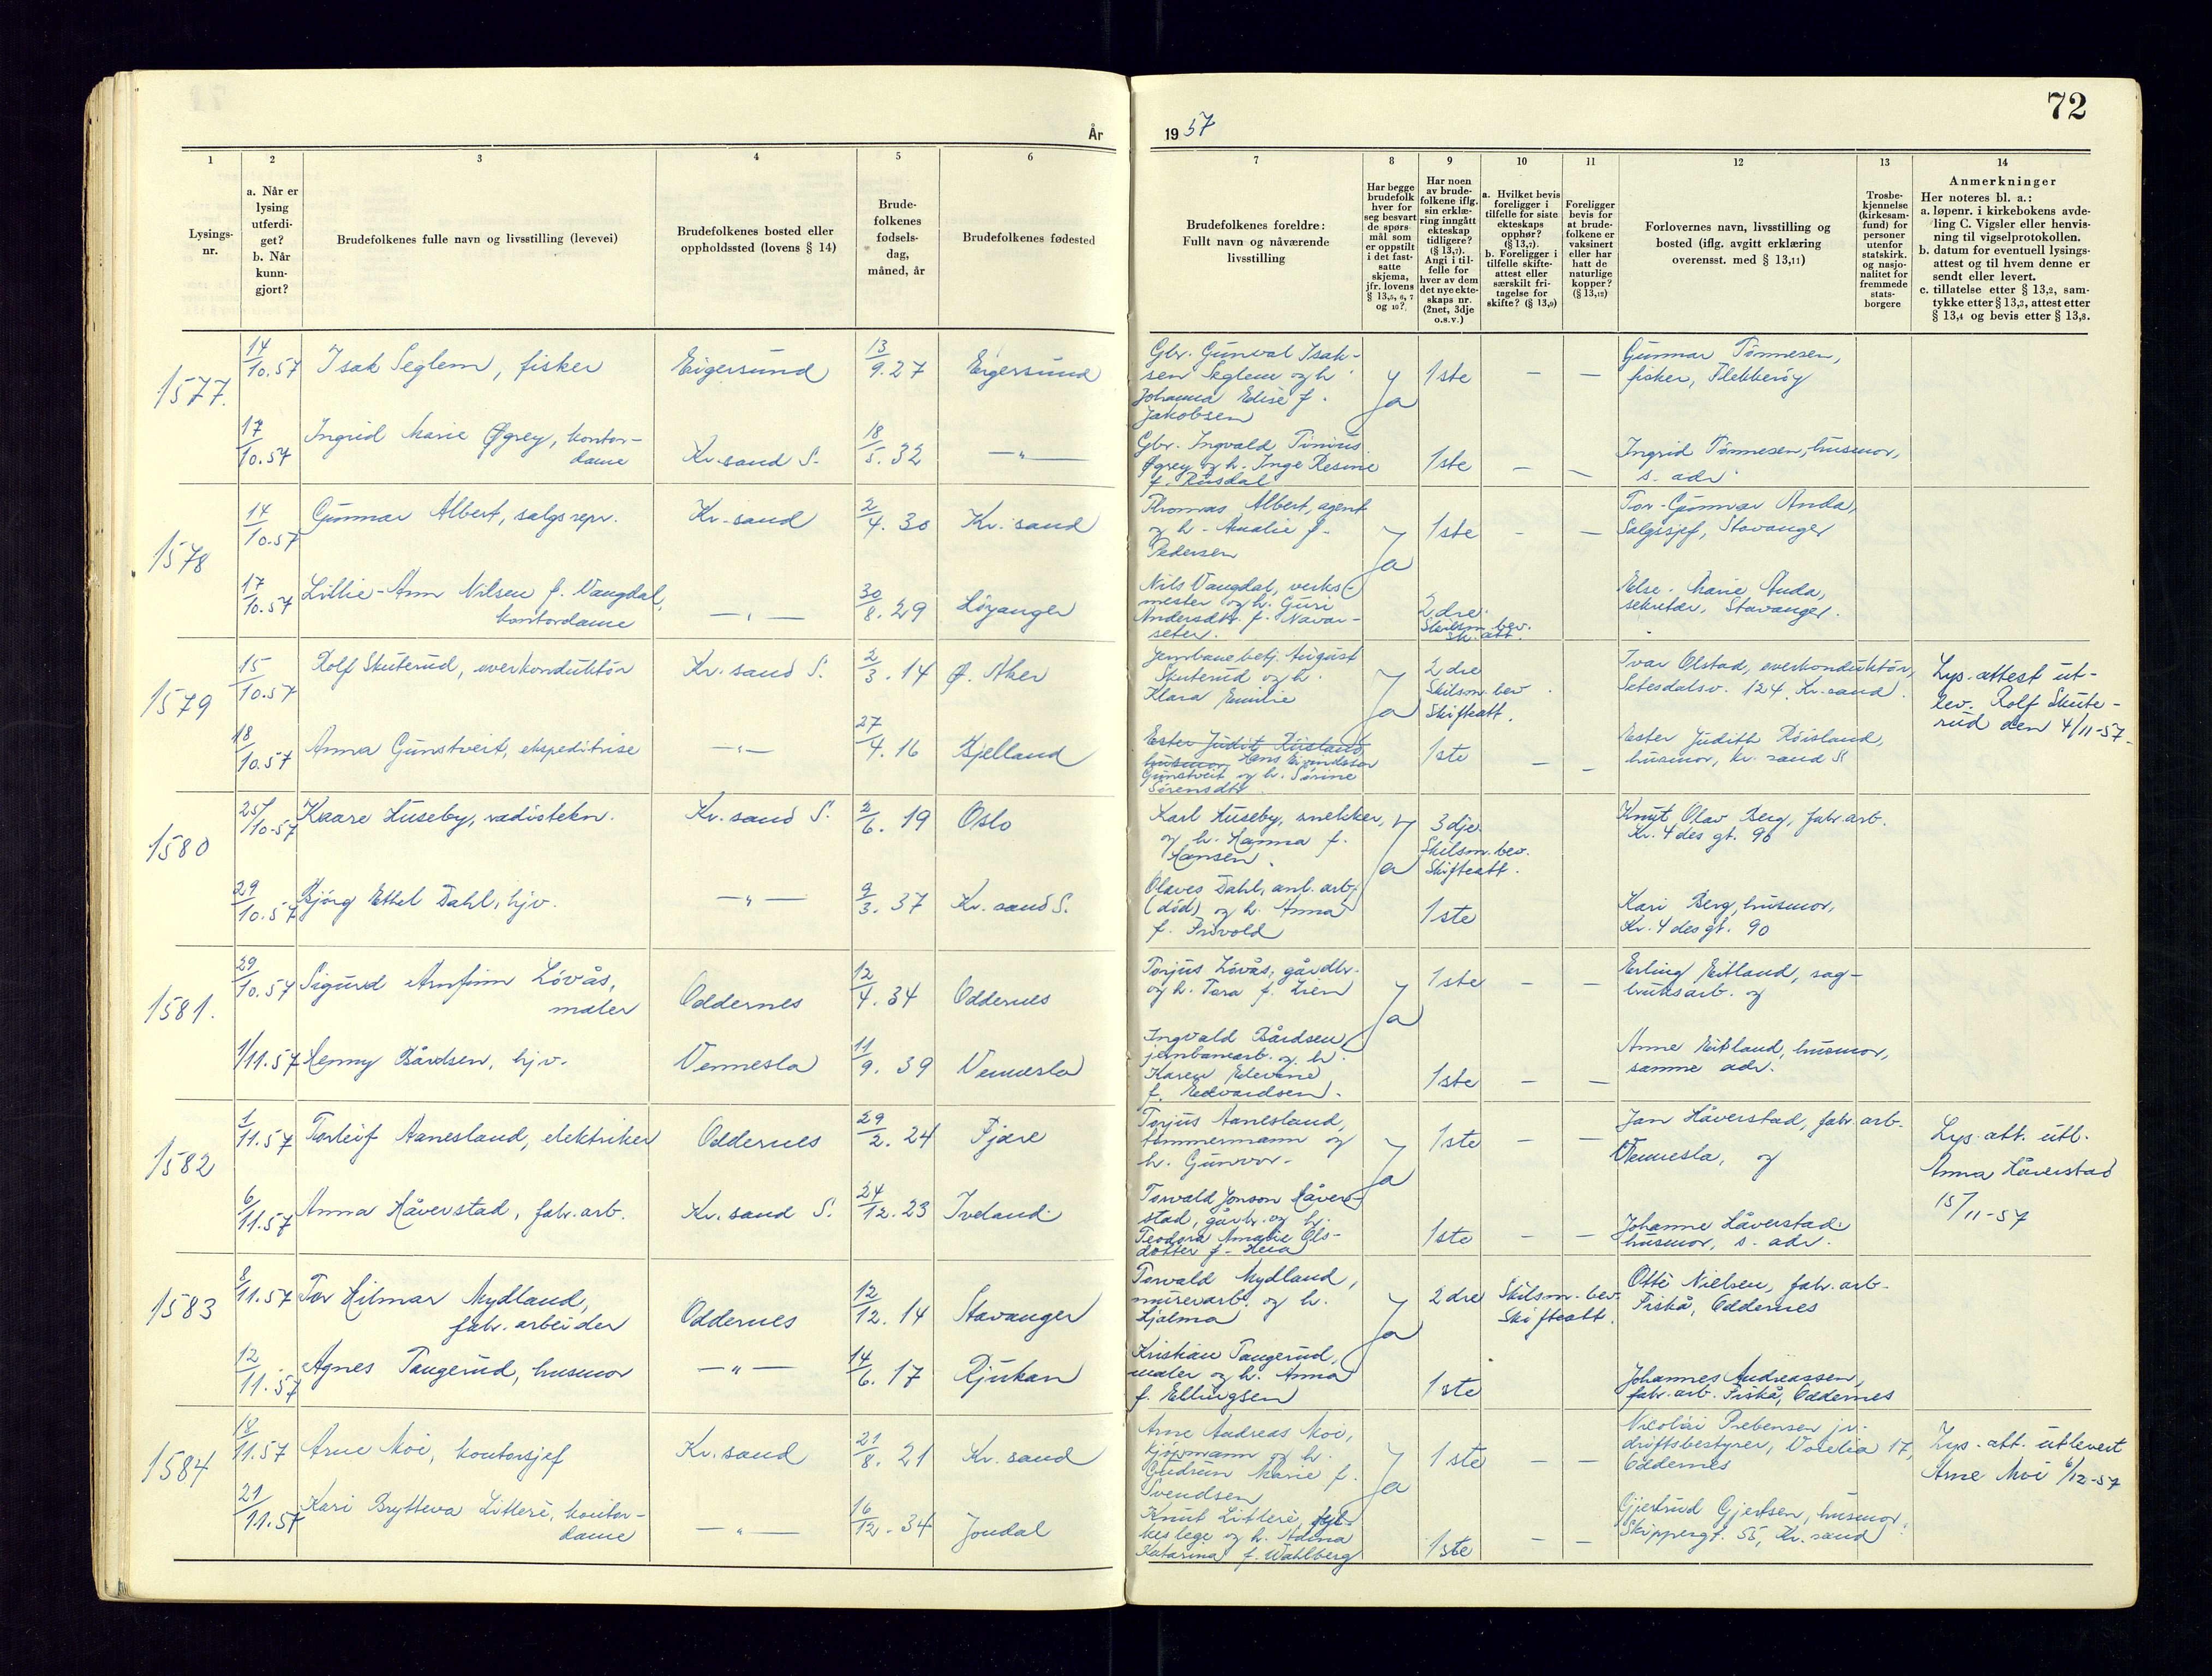 72
År
19 57
1
2
3
4
5
6
7
8
9
10
11
12
13
14
Lysings-
nr.
a. Når er
lysing
utferdi-
get?
b. Når
kunn-
gjort?
Brudefolkenes fulle navn og livsstilling (levevei)
Brudefolkenes bosted eller
oppholdssted (lovens § 14)
Brude-
folkenes
fødsels-
dag,
måned, år
Brudefolkenes fødested
Brudefolkenes foreldre:
Fullt navn og nåværende
livsstilling
Har begge
brudefolk
hver for
seg besvart
de spørs-
mål som
er oppstilt
i det fast-
satte
skjema,
jfr. lovens
§ 13,5, 6, 7
og 10?
Har noen
av brude-
folkene iflg.
sin erklæ-
ring inngått
ekteskap
tidligere?
(§ 13,7).
Angi i til-
felle for
hver av dem
det nye ekte-
skaps nr.
(2net, 3dje
o.s.v.)
a. Hvilket bevis
foreligger i
tilfelle for siste
ekteskaps
opphør?
(§ 13,7).
b. Foreligger i
tilfelle skifte-
attest eller
særskilt fri-
tagelse for
skifte? (§ 13,9)
Foreligger
bevis for
at brude-
folkene er
vaksinert
eller har
hatt de
naturlige
kopper?
(§ 13,12)
Forlovernes navn, livsstilling og
bosted (iflg. avgitt erklæring
overensst. med § 13,11)
Trosbe-
kjennelse
(kirkesam-
fund) for
personer
utenfor
statskirk.
og nasjo-
nalitet for
fremmede
stats-
borgere
Anmerkninger
Her noteres bl. a.:
a. løpenr. i kirkebokens avde-
ling C. Vigsler eller henvis-
ning til vigselprotokollen.
b. datum for eventuell lysings-
attest og til hvem denne er
sendt eller levert.
c. tillatelse etter § 13,2, sam-
tykke etter § 13,3, attest etter
§ 13,4 og bevis etter § 13,8.
1577.
14/10.57 Isak Seglem, fisker Eigersund 13/9.27 Eigersund
Gbr. Gunval Isak-
sen Seglem og h.
Johanna Elise f.
Jakobsen
Ja 1ste — —
Gunnar Tønnesen,
fisker, Flekkerøy
17/10.57 Ingrid Marie Øgrey, kontor-
dame Kr.sand S. 18/5.32 —"—
Gbr. Ingvald Tinius
Øgrey og h. Inge Resine
f. Rusdal
1ste — —
Ingrid Tønnesen, husmor,
s. adr.
1578
14/10.57 Gunnar Albert, salgsrepr. Kr.sand 2/4.30 Kr.sand
Thomas Albert, agent
og h. Amalie f.
Pedersen
Ja 1ste - —
Tor-Gunnar Anda,
Salgssjef, Stavanger
17/10.57 Lillie-Ann Nilsen f. Vangdal,
kontordame —"— 30/8.29 Høyanger
Nils Vangdal, verks-
mester og h. Guri
Andersdtr. f. Navar-
seter.
2dre.
Skilsm.bev.
sk.att.
Else-Marie Anda,
sekretær, Stavanger.
1579
15/10.57 Rolf Skuterud, overkonduktør Kr.sand S. 2/3.14 Ø. Aker
Jernbanebetj. August
Skuterud og h.
Klara Emilie
Ja 2dre
Skilsm.bev.
Skifteatt.
Ivar Olstad, overkonduktør,
Setesdalsv. 124. Kr.sand.
Lys.attest ut-
lev. Rolf Skute-
rud den 4/11-57.
18/10.57 Anna Gunstveit, ekspeditrise —"— 27/4.16 Bjelland
Ester Judit Risland,
husmor, Hans Eivindson
Gunstveit og h. Sørine
Sørensdtr.
1ste — —
Ester Judith Røisland,
husmor, Kr.sand S
1580
25/10-57 Kaare Huseby, radiotekn. Kr.sand S. 2/6.19 Oslo
Karl Huseby, snekker,
og h. Hanna f.
Hansen.
Ja 3dje
Skilsm.bev.
Skifteatt.
Knut Olav Berg, fabr.arb.
Kr. 4des gt. 90
29/10.57 Bjørg Ethel Dahl, hjv. —"— 9/3.37 Kr.sand S.
Olaves Dahl, anl. arb.
(død) og h. Anna
f. Frivold
1ste
Kari Berg, husmor,
Kr. 4des gt. 90
1581.
29/10.57 Sigurd Arnfinn Løvås,
maler Oddernes 12/4.34 Oddernes
Torjus Løvås, gårdbr.
og h. Tora f. Lien
Ja 1ste — —
Erling Eitland, sag-
bruksarb. og
1/11.57 Henny Bårdsen, hjv. Vennesla 11/9.39 Vennesla
Ingvald Bårdsen
jernbanearb. og h.
Karen Edevine
f. Edvardsen.
1ste — —
Anne Eitland, husmor,
samme adr.
1582
1/11.57 Torleif Aanesland, elektriker Oddernes 29/2.24 Fjære
Torjus Aanesland,
tømmermann og
h. Gunvor.
Ja 1ste — —
Jan Håverstad, fabr.arb.
Vennesla, og
Lys.att. utl.
Anna Håverstad
15/11-57
6/11.57 Anna Håverstad, fabr.arb. Kr.sand S. 24/12.23 Iveland
Torvald Jonson Håver-
stad, gårbr. og h.
Teodora Amalie Ols-
dotter f. Heia
1ste — —
Johanne Håverstad
husmor, s. adr.
1583
8/11.57 Tor Hilmar Mydland,
fabr.arbeider Oddernes 12/12.14 Stavanger
Torvald Mydland,
murerarb. og h.
Hjalma
Ja 2dre Skilsm.bev.
Skifteatt.
Otte Nielsen, fabr.arb.
Fiskå, Oddernes
12/11.57 Agnes Tangerud, husmor —"— 14/6.17 Rjukan
Kristian Tangerud,
maler og h. Anna
f. Ellingsen
1ste
Johannes Andreassen,
fabr.arb. Fiskå, Oddernes
1584
18/11.57 Arne Moi, kontorsjef Kr.sand 21/8.21 Kr.sand
Arne Andreas Moi,
kjøpmann og h.
Gudrun Marie f.
Svendsen
Ja 1ste — —
Nicolai Prebensen jr.
driftsbestyrer, Voielia 17,
Oddernes
Lys.att. utlevert
Arne Moi 6/12-57
21/11.57 Kari Brytteva Litleré, kontor-
dame —"— 16/12.34 Jondal
Knut Litleré, fyl-
keslege og h. Adena
Katarina f. Wahlberg
1ste — —
Gjertrud Gjertsen, husmor
Skippergt. 55, Kr.sand